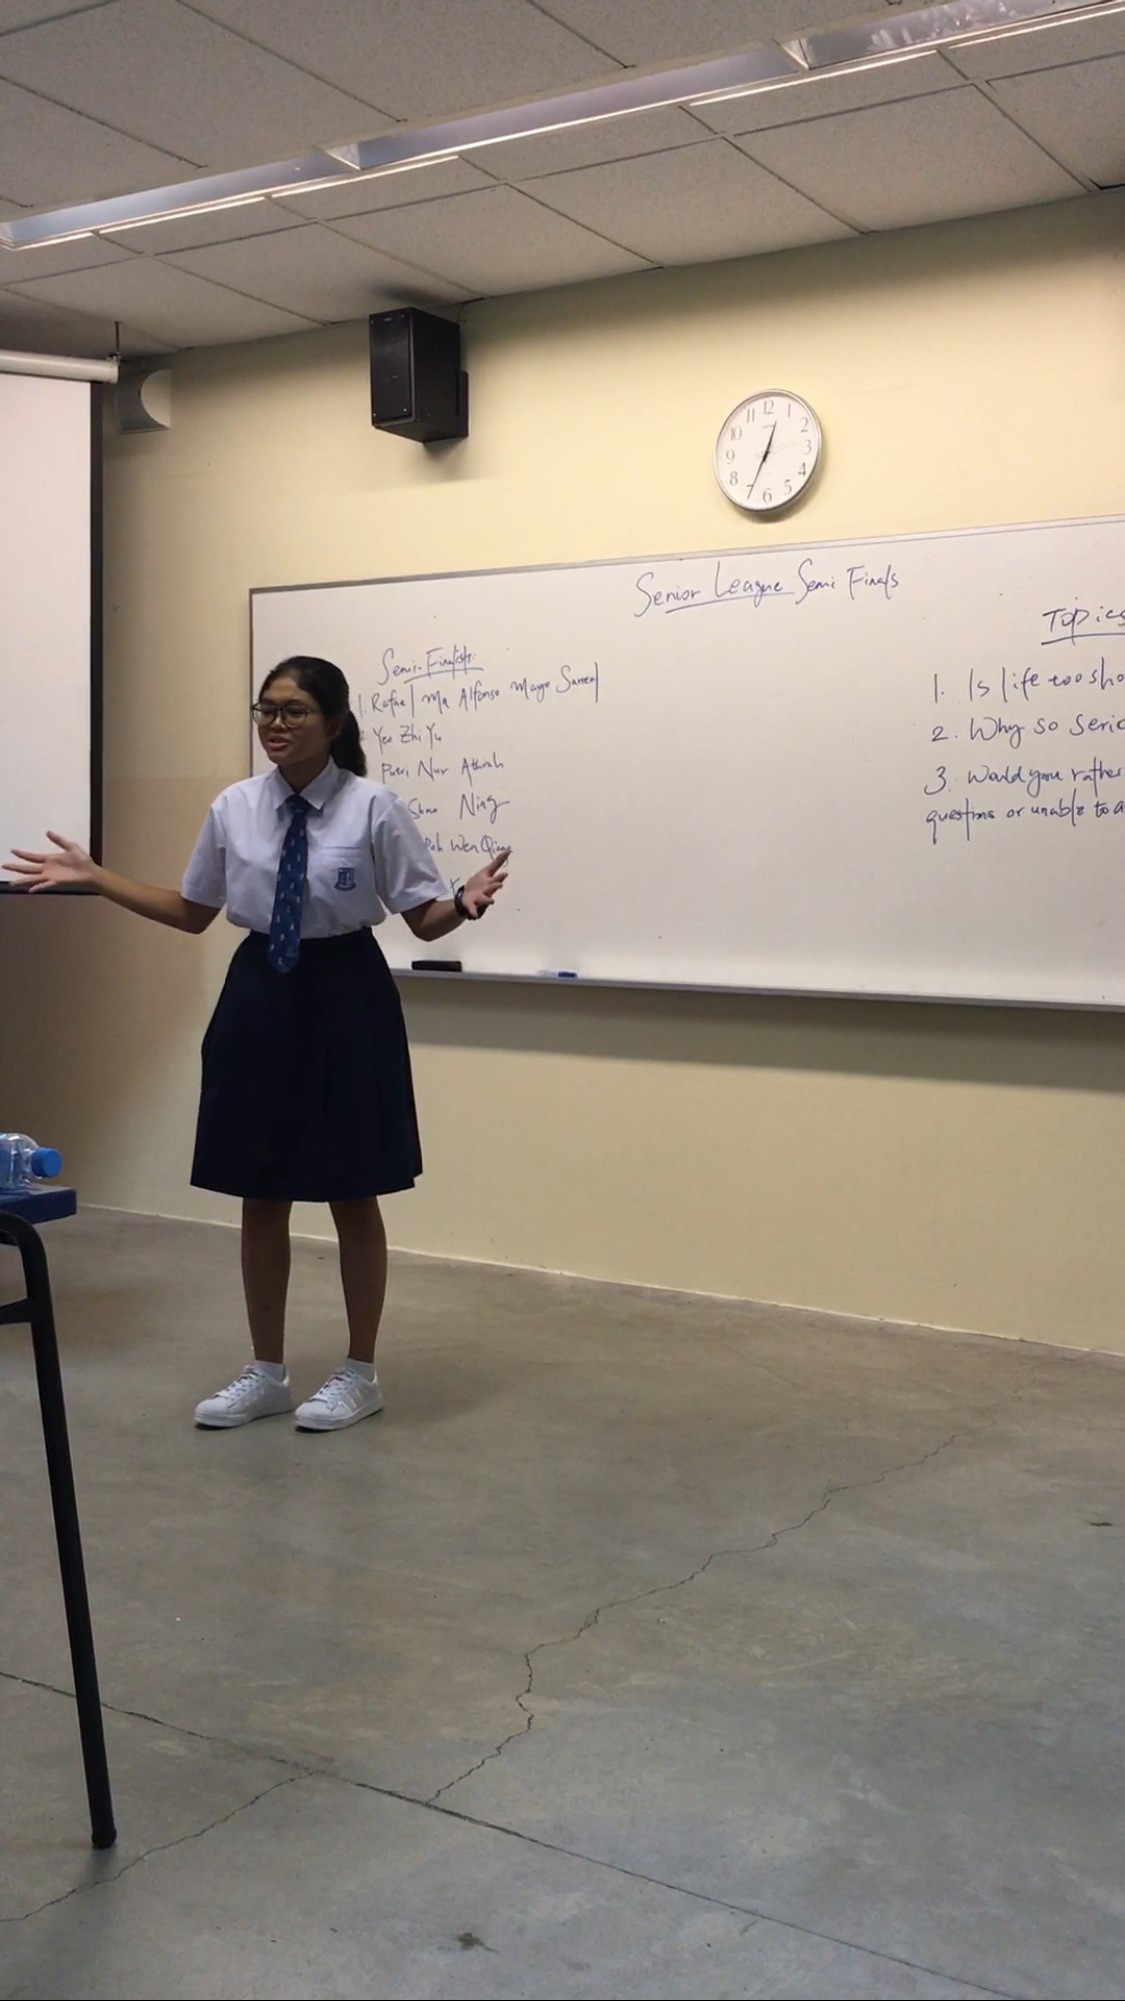 Senior League Semi Finals
Semi-Finalists:
1. Rafael Ma Alfonso
Yeo Zhi Yu
Putri Nur Athirah
Shao Ning
Poh Wen Qiang
Topics
1. Is life too sho
2. Why so serio
3. Would you rather
questions or unable to a
12
1
2
3
4
5
6
7
8
9
10
11